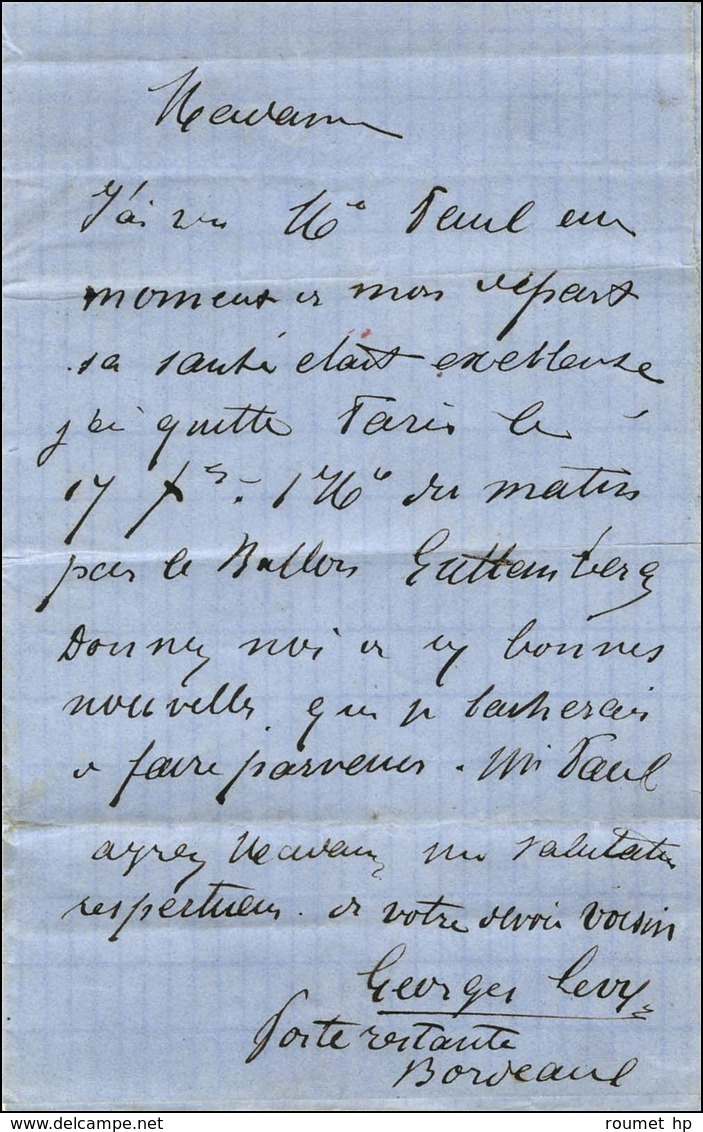 Madame
J'ai vu Mr Paul au
moment de mon départ
sa santé était excellente
j'ai quitté Paris le
17 Xbre à 1 Hre du matin
par le Ballon Guttemberg
Donnez moi de vos bonnes
nouvelles que je tacherais
de faire parvenir à Mr Paul
agréez Madame mes salutations
respectueuses de votre dévoué voisin
Georges Levy
Poste restante
Bordeaux
roumet hp